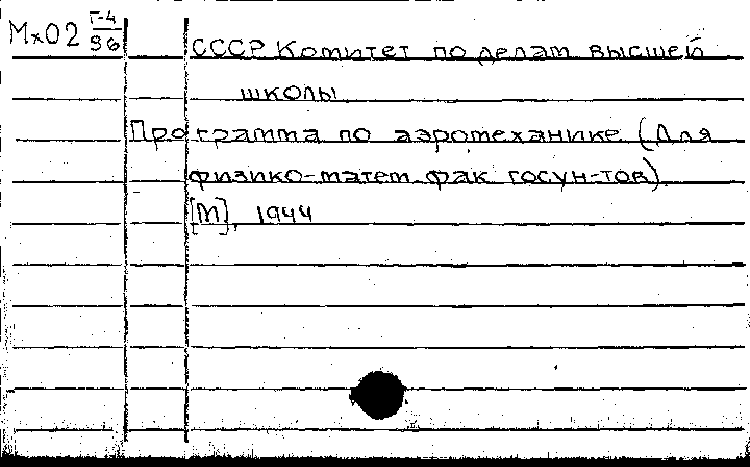 Мх02 Г-4/96
СССР Комитет по делам высшей
школы
Программа по аэромеханике (Для
физико-матем. фак госун-тов)
[М], 1944